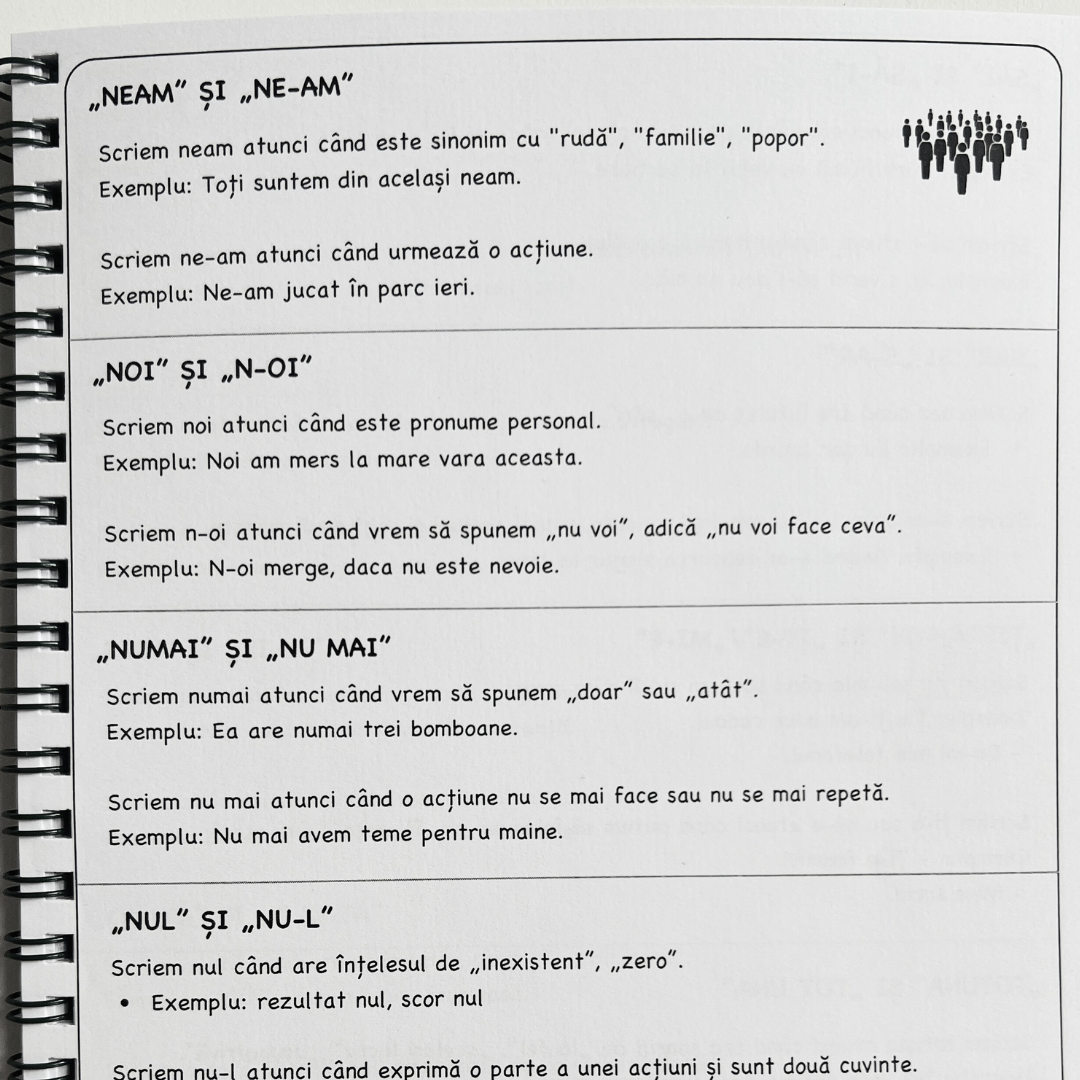 „NEAM” ȘI „NE-AM”
Scriem neam atunci când este sinonim cu "rudă", "familie", "popor".
Exemplu: Toți suntem din același neam.
Scriem ne-am atunci când urmează o acțiune.
Exemplu: Ne-am jucat în parc ieri.
„NOI” ȘI „N-OI”
Scriem noi atunci când este pronume personal.
Exemplu: Noi am mers la mare vara aceasta.
Scriem n-oi atunci când vrem să spunem „nu voi”, adică „nu voi face ceva”.
Exemplu: N-oi merge, daca nu este nevoie.
„NUMAI” ȘI „NU MAI”
Scriem numai atunci când vrem să spunem „doar” sau „atât”.
Exemplu: Ea are numai trei bomboane.
Scriem nu mai atunci când o acțiune nu se mai face sau nu se mai repetă.
Exemplu: Nu mai avem teme pentru maine.
„NUL” ȘI „NU-L”
Scriem nul când are înțelesul de „inexistent”, „zero”.
• Exemplu: rezultat nul, scor nul
Scriem nu-l atunci când exprimă o parte a unei acțiuni și sunt două cuvinte.